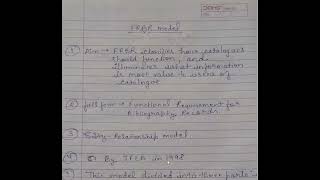 FRBR model
① Aim → FRBR clarifies how catalogues
should function, and
illuminates what information
is most value to users of
catalogue
② full form → Functional Requirement for
Bibliography Records.
③ Entity-Relationship model
④ By IFLA in 1998
⑤ This model divided into three parts